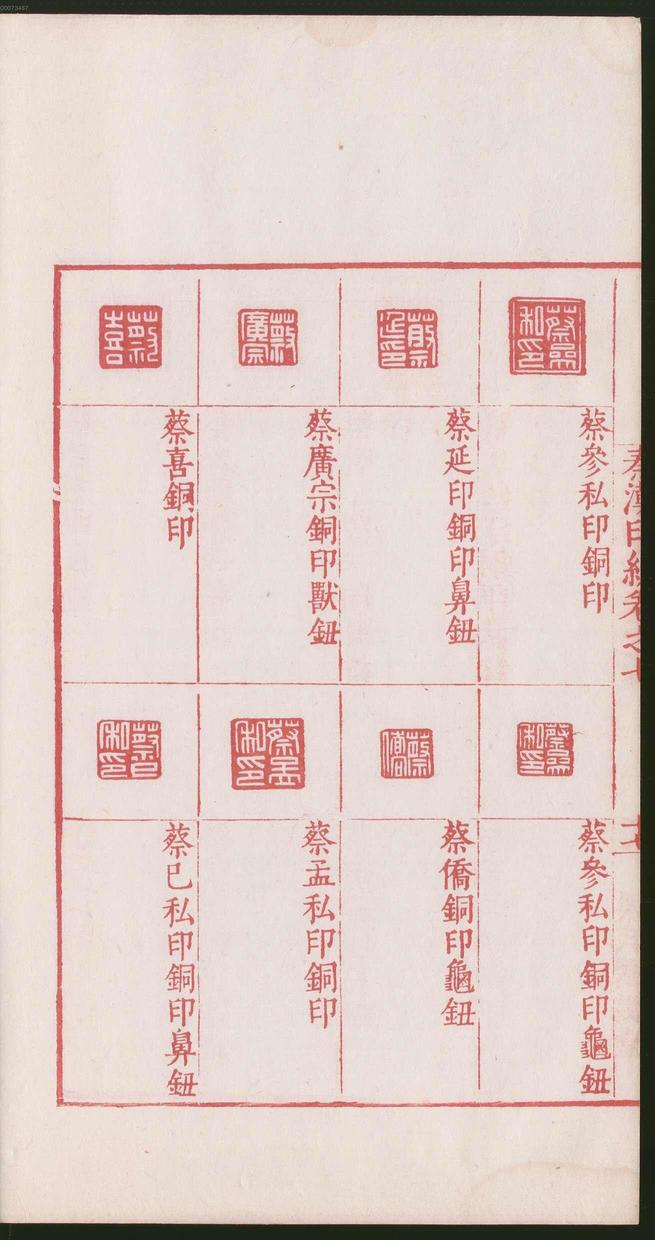 00073467
秦漢印統卷之七
蔡參私印銅印
蔡延印銅印鼻鈕
蔡廣宗銅印獸鈕
蔡喜銅印
蔡參私印銅印龜鈕
蔡僑銅印龜鈕
蔡孟私印銅印
蔡巳私印銅印鼻鈕